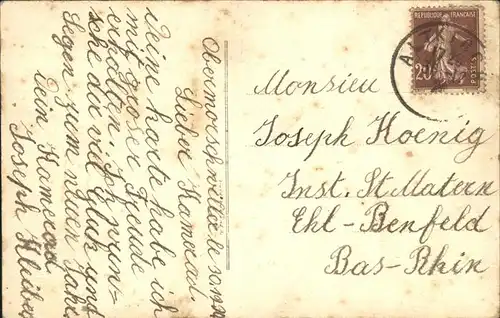 Obermorschwiller le
Lieber Kamerad.
Deine Karte habe ich
mit groser Freude
erhalten. Ich wün-
sche dir viel Glük und
Segen zum neuen Jahr
Dein Kamerad
Joseph
REPUBLIQUE FRANÇAISE
20
POSTES
AL
Monsieu
Joseph Hoenig
Inst. St. Matern
Ehl-Benfeld
Bas-Rhin